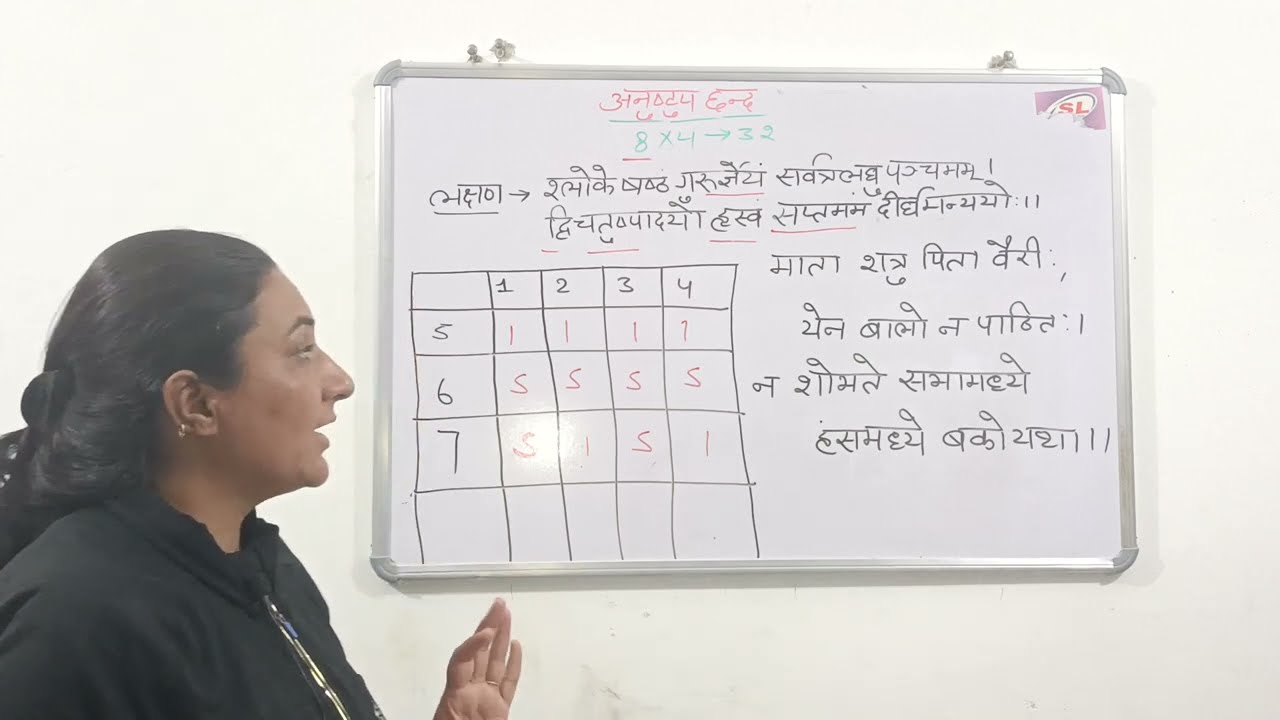 अनुष्टुप छन्द
8 × 4 → 32
SL
लक्षण → श्लोके षष्ठं गुरुर्ज्ञेयं सर्वत्रलघु पञ्चमम् ।
द्विचतुष्पादयो ह्रस्वं सप्तममं दीर्घमन्ययोः ।।
1 2 3 4
5 I I I I
6 S S S S
7 S I S I
माता शत्रु पिता वैरीः,
येन बालो न पाठितः ।
न शोभते सभामध्ये
हंसमध्ये बको यथा ।।